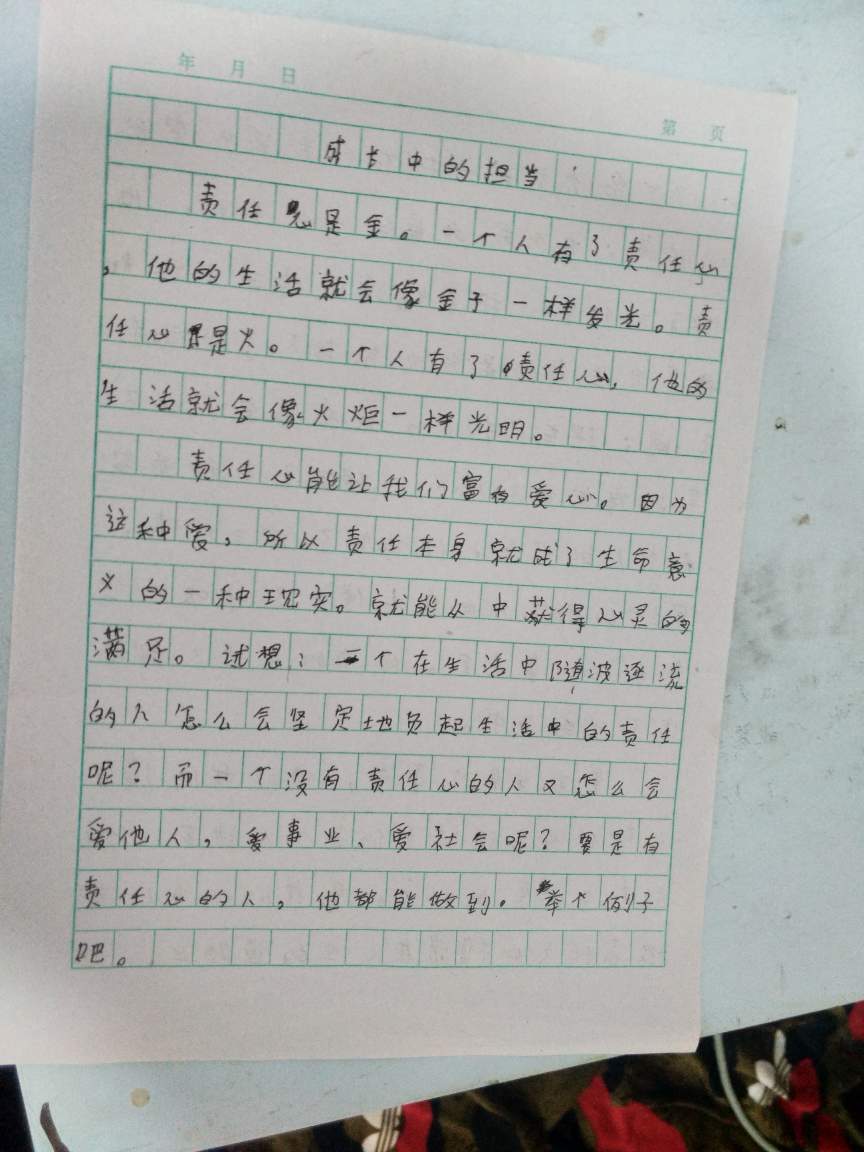 年 月 日
第 页
成长中的担当
责任心是金。一个人有了责任心
，他的生活就会像金子一样发光。责
任心是火。一个人有了责任心，他的
生活就会像火炬一样光明。
责任心能让我们富有爱心。因为
这种爱，所以责任本身就成了生命意
义的一种现实。就能从中获得心灵的
满足。试想：一个在生活中随波逐流
的人怎么会坚定地负起生活中的责任
呢？而一个没有责任心的人又怎么会
爱他人，爱事业、爱社会呢？要是有
责任心的人，他都能做到。举个例子
吧。